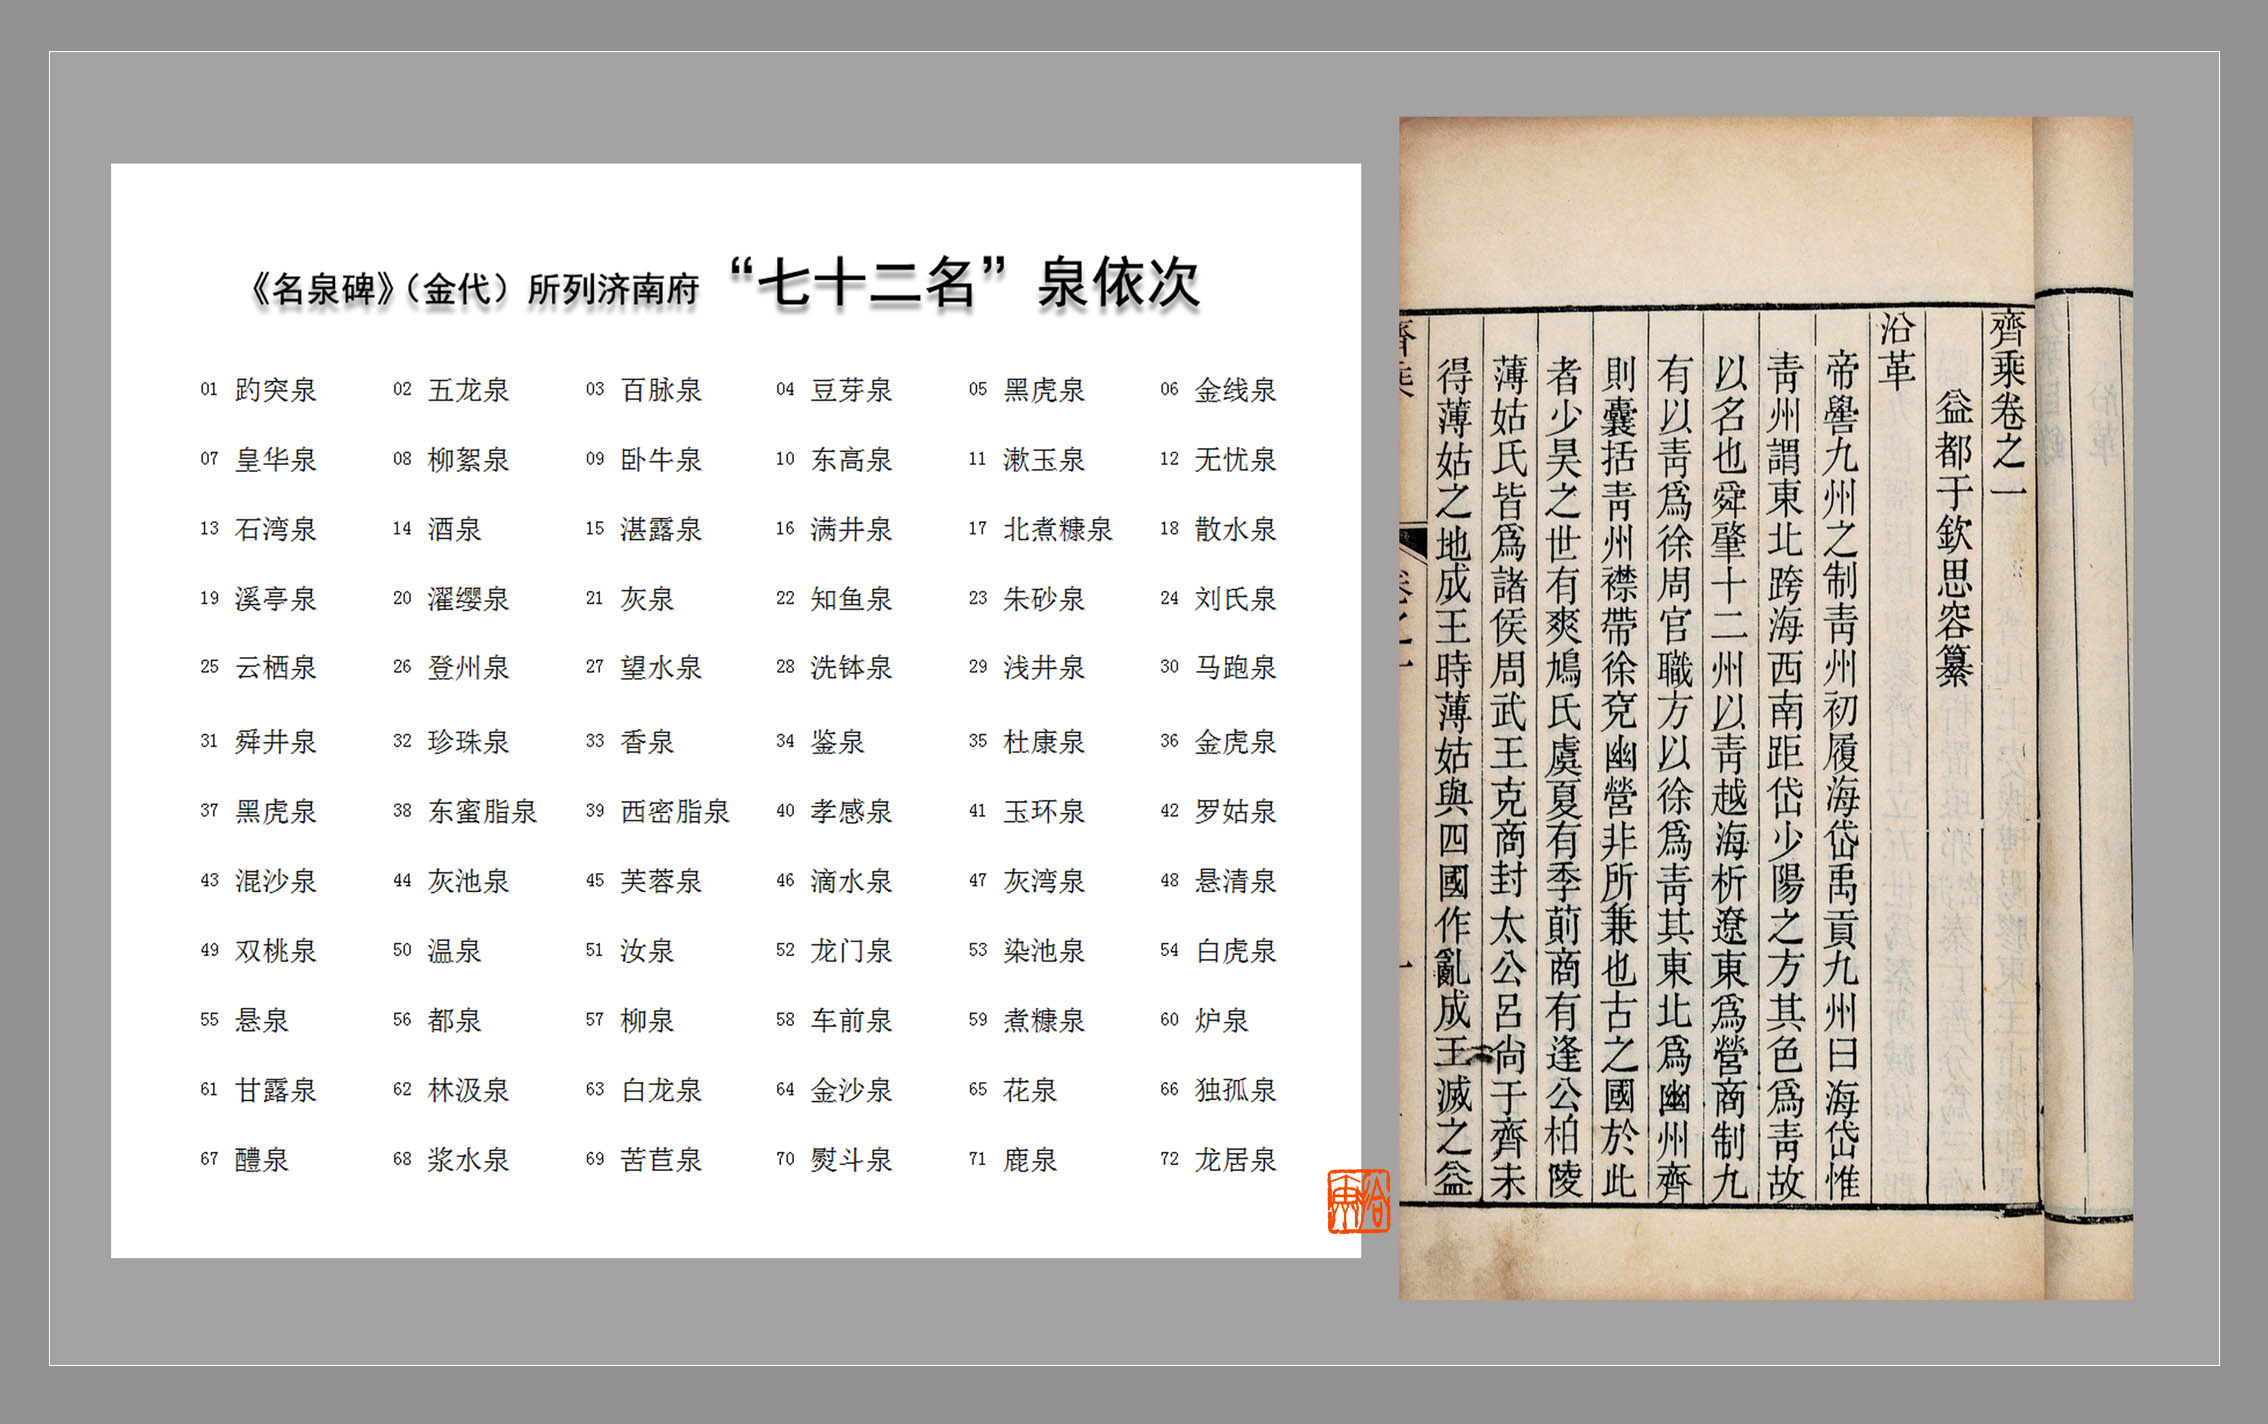 《名泉碑》（金代）所列济南府“七十二名”泉依次
01 趵突泉 02 五龙泉 03 百脉泉 04 豆芽泉 05 黑虎泉 06 金线泉
07 皇华泉 08 柳絮泉 09 卧牛泉 10 东高泉 11 漱玉泉 12 无忧泉
13 石湾泉 14 酒泉 15 湛露泉 16 满井泉 17 北煮糠泉 18 散水泉
19 溪亭泉 20 濯缨泉 21 灰泉 22 知鱼泉 23 朱砂泉 24 刘氏泉
25 云栖泉 26 登州泉 27 望水泉 28 洗钵泉 29 浅井泉 30 马跑泉
31 舜井泉 32 珍珠泉 33 香泉 34 鉴泉 35 杜康泉 36 金虎泉
37 黑虎泉 38 东蜜脂泉 39 西密脂泉 40 孝感泉 41 玉环泉 42 罗姑泉
43 混沙泉 44 灰池泉 45 芙蓉泉 46 滴水泉 47 灰湾泉 48 悬清泉
49 双桃泉 50 温泉 51 汝泉 52 龙门泉 53 染池泉 54 白虎泉
55 悬泉 56 都泉 57 柳泉 58 车前泉 59 煮糠泉 60 炉泉
61 甘露泉 62 林汲泉 63 白龙泉 64 金沙泉 65 花泉 66 独孤泉
67 醴泉 68 浆水泉 69 苦苣泉 70 熨斗泉 71 鹿泉 72 龙居泉
齊乗卷之一
益都于欽思容纂
沿革
帝嚳九州之制青州初履海岱禹貢九州曰海岱惟
青州謂東北跨海西南距岱少陽之方其色爲青故
以名也舜肇十二州以青越海析遼東爲營商制九
有以青爲徐周官職方以徐爲青其東北爲幽州齊
則囊括青州襟帶徐兗幽營非所兼也古之國於此
者少昊之世有爽鳩氏虞夏有季萴商有逢公柏陵
薄姑氏皆爲諸侯周武王克商封太公呂尚于齊未
得薄姑之地成王時薄姑與四國作亂成王滅之益